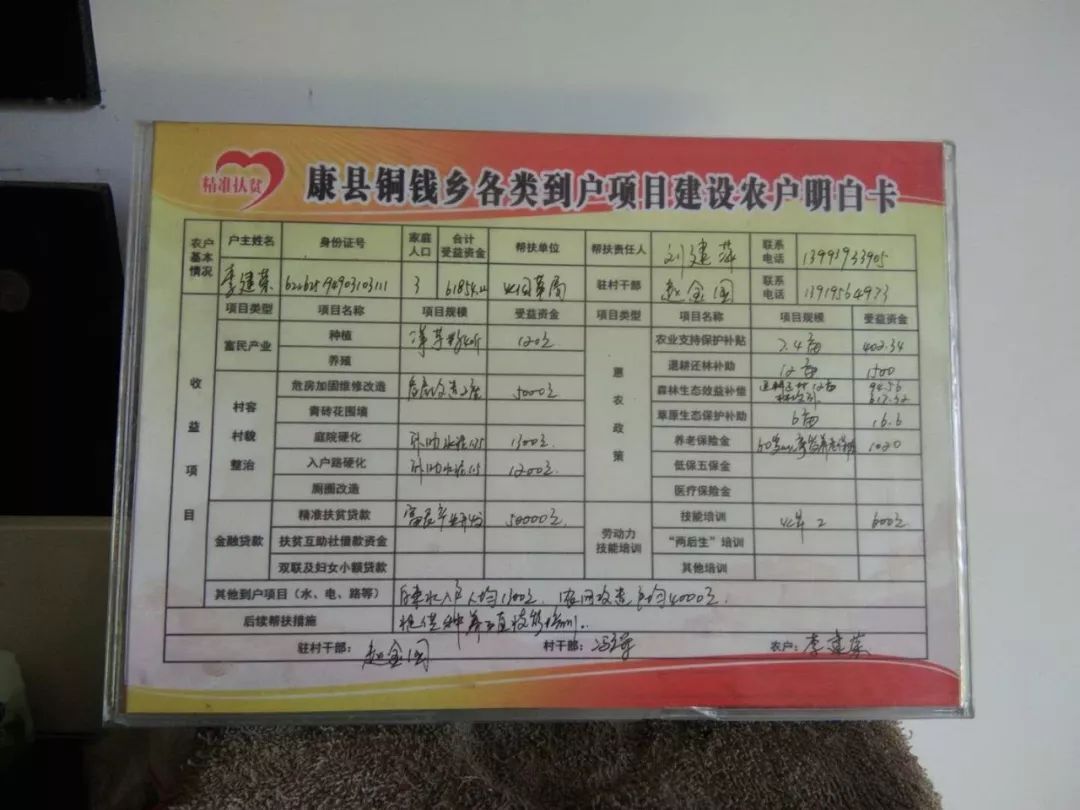 精准扶贫
康县铜钱乡各类到户项目建设农户明白卡
农户基本情况 户主姓名 身份证号 家庭人口 合计受益资金 帮扶单位 帮扶责任人 刘建萍 联系电话 13993933905
李建荣 3 驻村干部 赵金国 联系电话
收益项目 项目类型 项目名称 项目规模 受益资金 项目类型 项目名称 项目规模 受益资金
富民产业 种植 120元 惠农政策 农业支持保护补贴 7.4亩 402.34
养殖 退耕还林补助 12亩 1500
村容村貌整治 危房加固维修改造 危房改造 5000元 森林生态效益补偿 退耕还林12亩 94.56
617.52
青砖花围墙 草原生态保护补助 6亩 16.6
庭院硬化 补助水泥 1300元 养老保险金 1020
入户路硬化 补助水泥 1200元 低保五保金
厕圈改造 医疗保险金
金融贷款 精准扶贫贷款 50000元 劳动力技能培训 技能培训 2 600元
扶贫互助社借款资金 “两后生”培训
双联及妇女小额贷款 其他培训
其他到户项目（水、电、路等） 自来水入户人均1300元，农网改造户均4000元
后续帮扶措施 提供种养
驻村干部：赵金国 村干部： 农户：李建荣